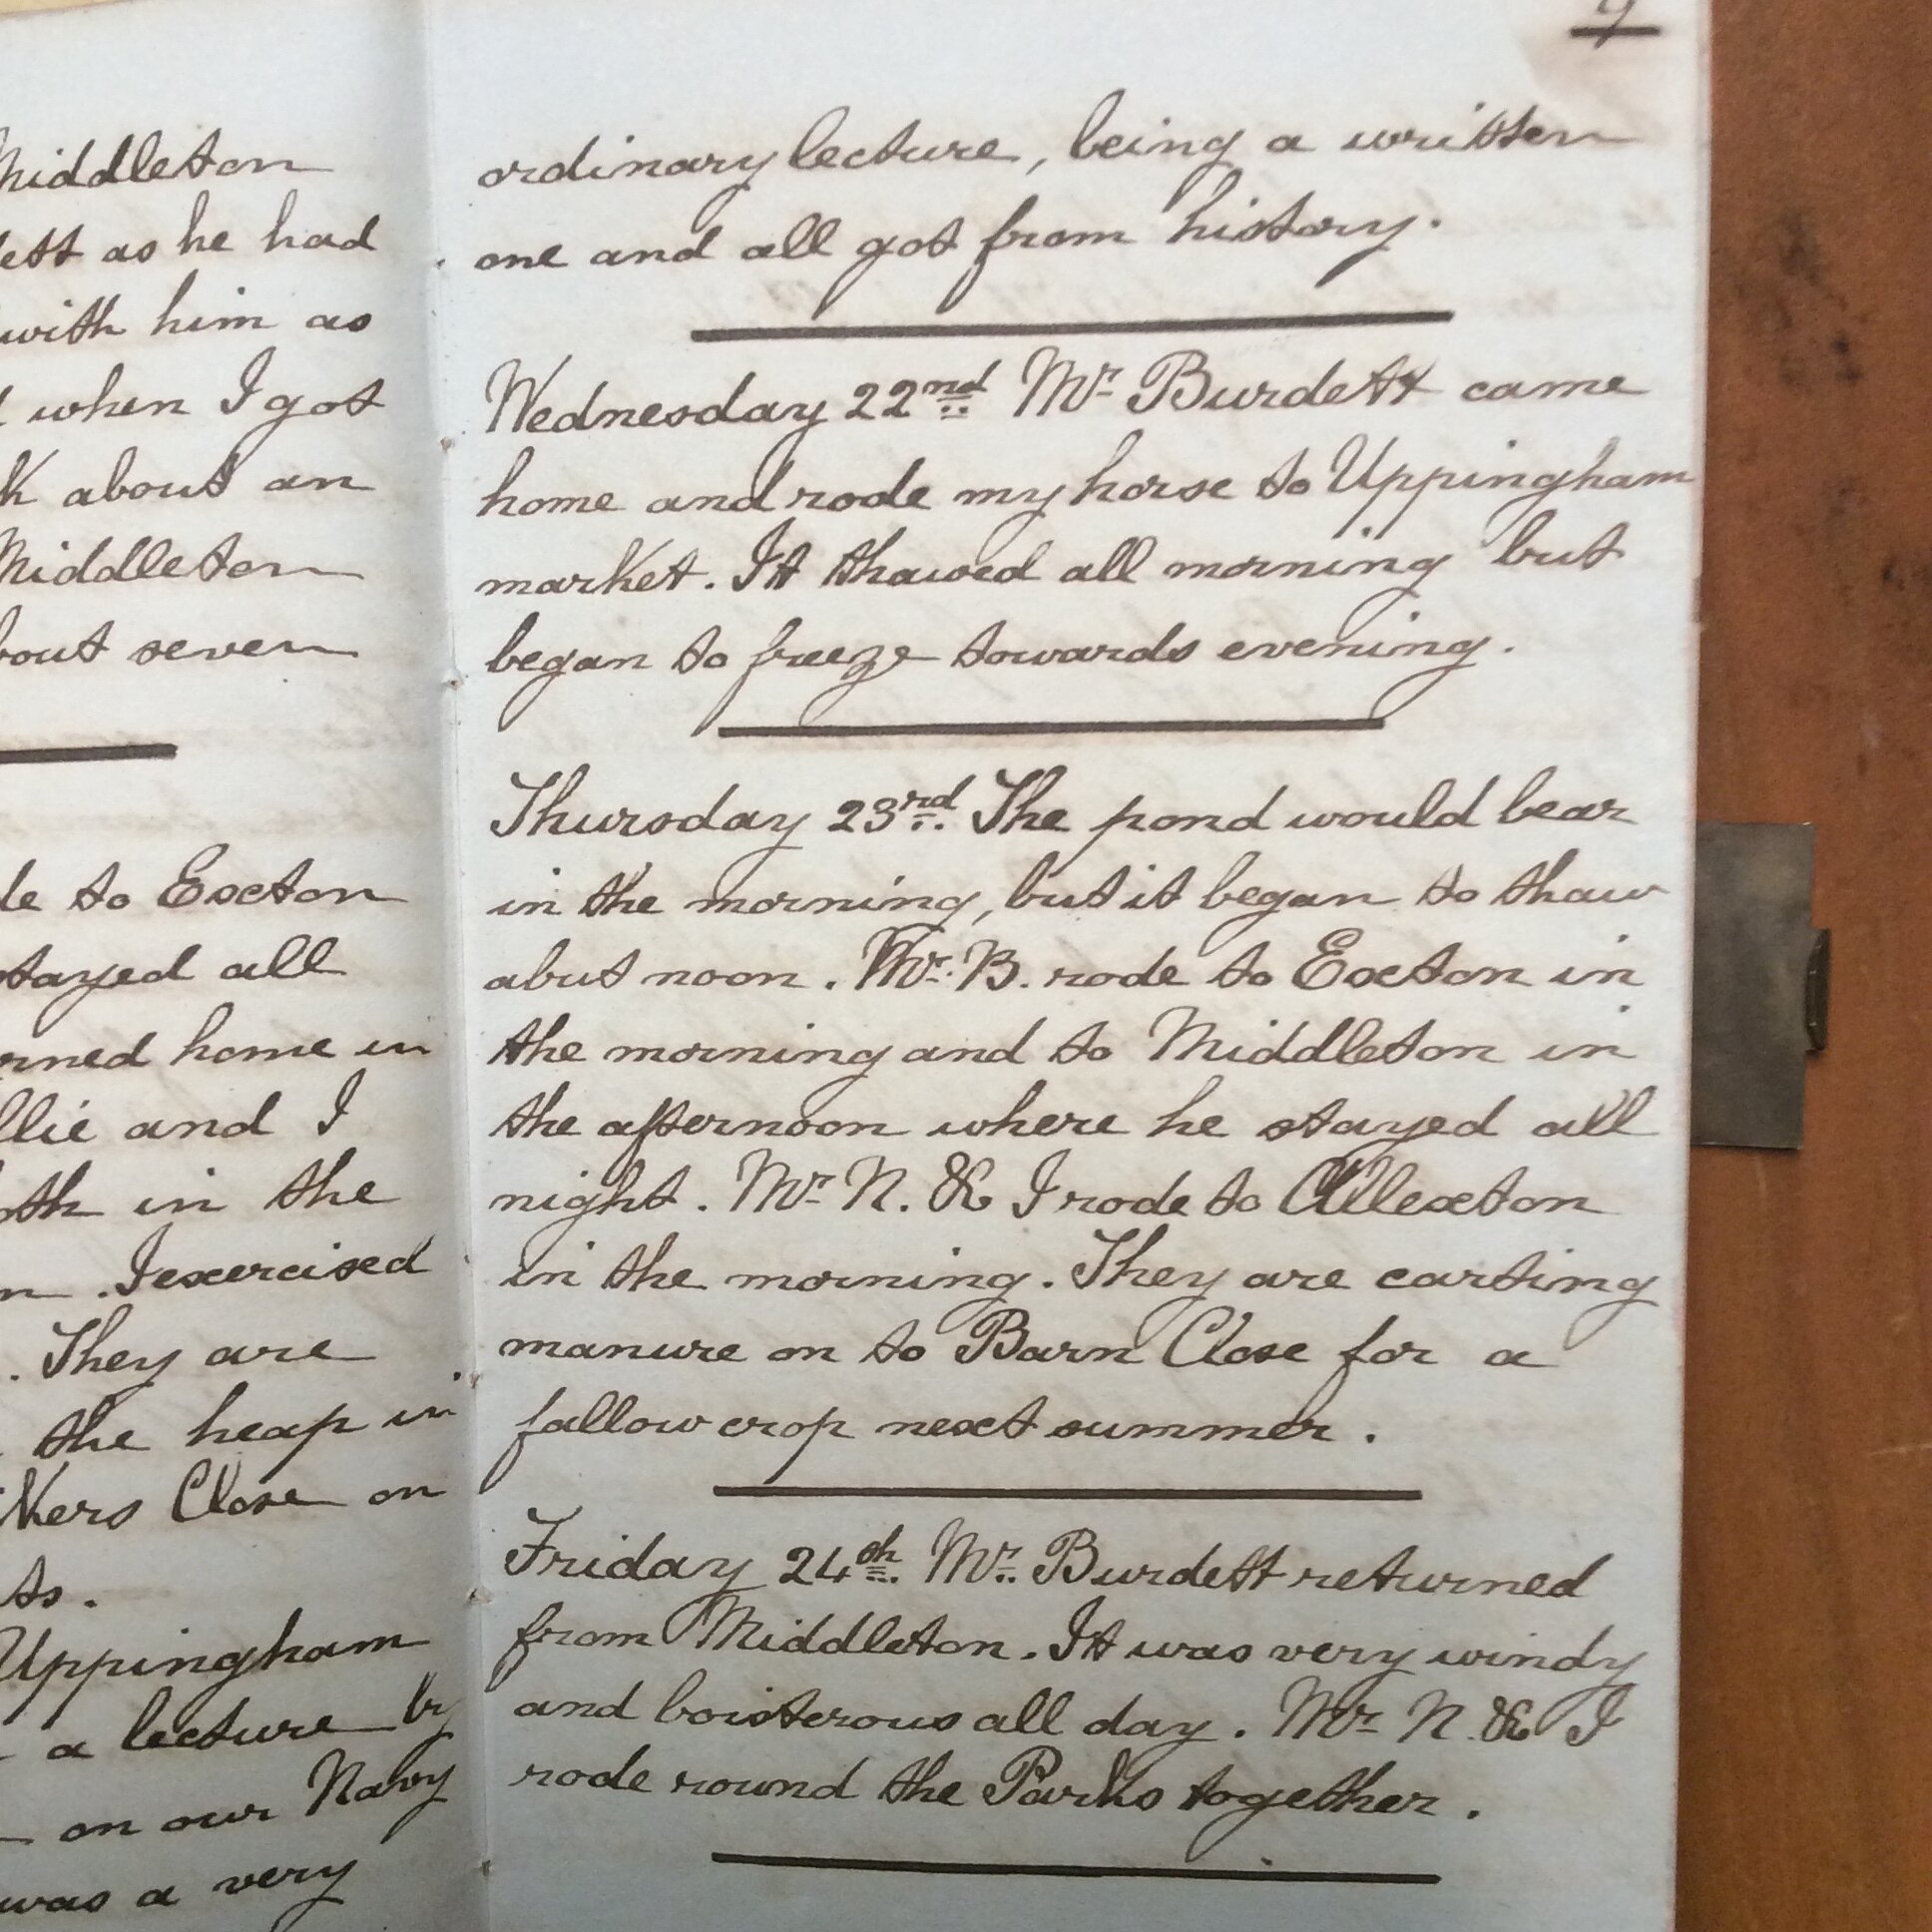 Middleton
as he had
with him as
when I got
about an
Middleton
seven
to Exton
stayed all
home in
and I
in the
. I exercised
. They are
the heap in
Close on
Uppingham
a lecture by
on our Navy
was a very
ordinary lecture, being a written
one and all got from history.
Wednesday 22nd Mr Burdett came
home and rode my horse to Uppingham
market. It thawed all morning but
began to freeze towards evening.
Thursday 23rd. The pond would bear
in the morning, but it began to thaw
abut noon. Mr. B. rode to Exton in
the morning and to Middleton in
the afternoon where he stayed all
night. Mr N. & I rode to Allexton
in the morning. They are carting
manure on to Barn Close for a
fallow crop next summer.
Friday 24th. Mr. Burdett returned
from Middleton. It was very windy
and boisterous all day. Mr N. & I
rode round the Parks together.